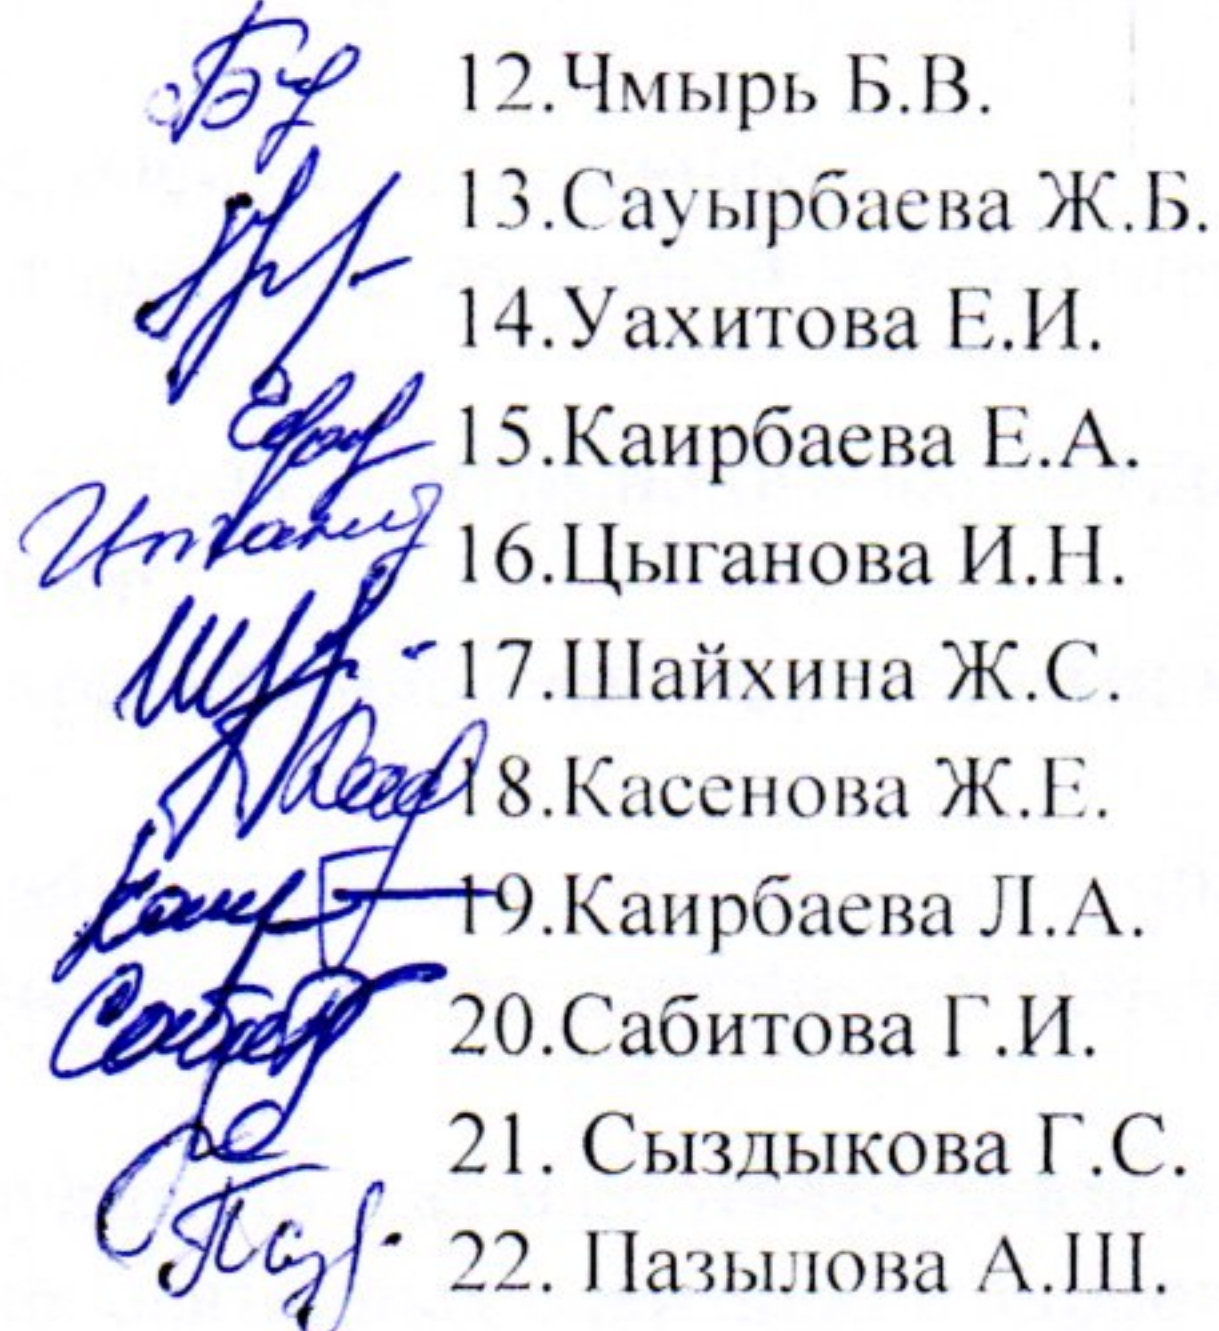 12.Чмырь Б.В.
13.Сауырбаева Ж.Б.
14.Уахитова Е.И.
15.Каирбаева Е.А.
16.Цыганова И.Н.
17.Шайхина Ж.С.
18.Касенова Ж.Е.
19.Каирбаева Л.А.
20.Сабитова Г.И.
21. Сыздыкова Г.С.
22. Пазылова А.Ш.